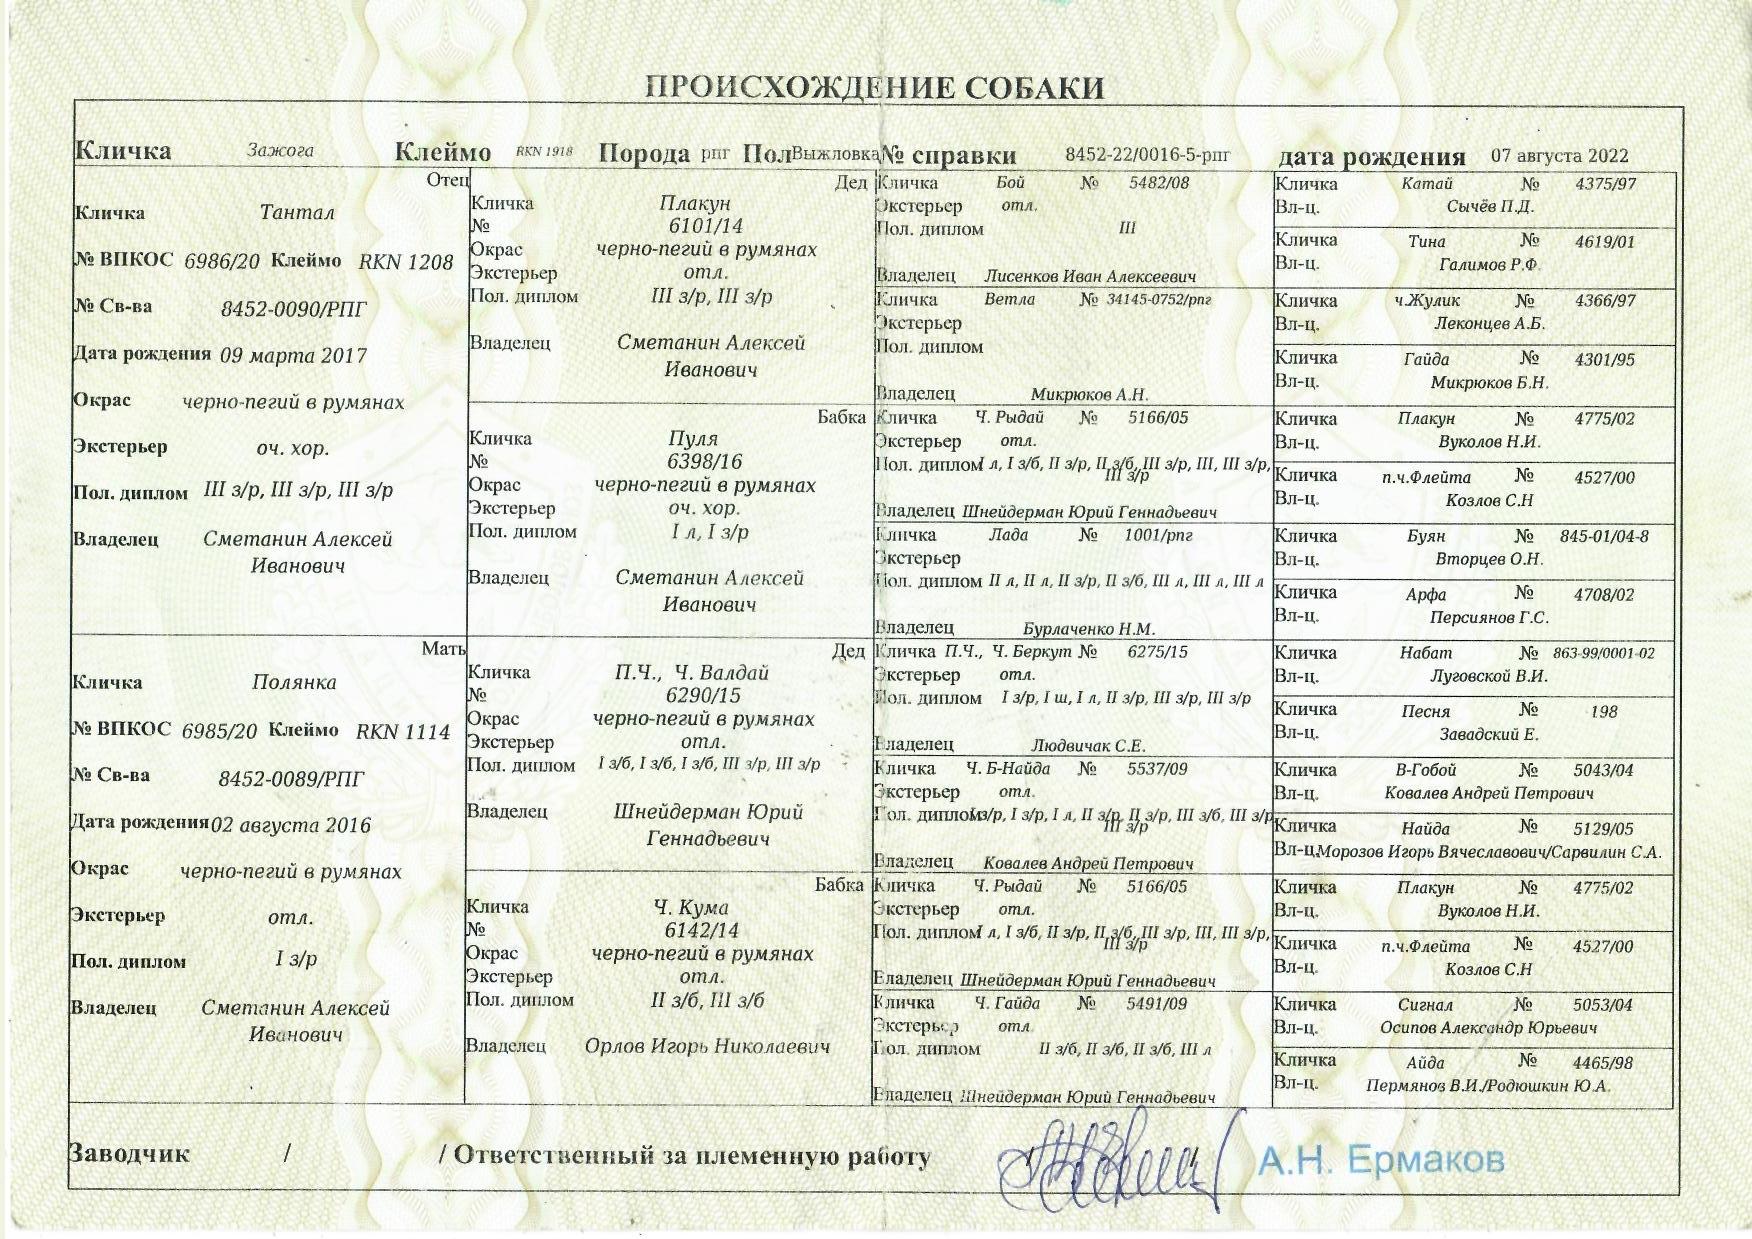 ПРОИСХОЖДЕНИЕ СОБАКИ
Кличка Зажога Клеймо RKN 1918 Порода рпг Пол Выжловка № справки 8452-22/0016-5-рпг дата рождения 07 августа 2022
Отец
Кличка Тантал
№ ВПКОС 6986/20 Клеймо RKN 1208
№ Св-ва 8452-0090/РПГ
Дата рождения 09 марта 2017
Окрас черно-пегий в румянах
Экстерьер оч. хор.
Пол. диплом III з/р, III з/р, III з/р
Владелец Сметанин Алексей
Иванович
Мать
Кличка Полянка
№ ВПКОС 6985/20 Клеймо RKN 1114
№ Св-ва 8452-0089/РПГ
Дата рождения 02 августа 2016
Окрас черно-пегий в румянах
Экстерьер отл.
Пол. диплом I з/р
Владелец Сметанин Алексей
Иванович
Дед
Кличка Плакун
№ 6101/14
Окрас черно-пегий в румянах
Экстерьер отл.
Пол. диплом III з/р, III з/р
Владелец Сметанин Алексей
Иванович
Бабка
Кличка Пуля
№ 6398/16
Окрас черно-пегий в румянах
Экстерьер оч. хор.
Пол. диплом I л, I з/р
Владелец Сметанин Алексей
Иванович
Дед
Кличка П.Ч., Ч. Валдай
№ 6290/15
Окрас черно-пегий в румянах
Экстерьер отл.
Пол. диплом I з/б, I з/б, I з/б, III з/р, III з/р
Владелец Шнейдерман Юрий
Геннадьевич
Бабка
Кличка Ч. Кума
№ 6142/14
Окрас черно-пегий в румянах
Экстерьер отл.
Пол. диплом II з/б, III з/б
Владелец Орлов Игорь Николаевич
Кличка Бой № 5482/08
Экстерьер отл.
Пол. диплом III
Владелец Лисенков Иван Алексеевич
Кличка Ветла № 34145-0752/рпг
Экстерьер
Пол. диплом
Владелец Микрюков А.Н.
Кличка Ч. Рыдай № 5166/05
Экстерьер отл.
Пол. диплом I л, I з/б, II з/р, II з/б, III з/р, III, III з/р,
III з/р
Владелец Шнейдерман Юрий Геннадьевич
Кличка Лада № 1001/рпг
Экстерьер
Пол. диплом II л, II л, II з/р, II з/б, III л, III л, III л
Владелец Бурлаченко Н.М.
Кличка П.Ч., Ч. Беркут № 6275/15
Экстерьер отл.
Пол. диплом I з/р, I ш, I л, II з/р, III з/р, III з/р
Владелец Людвичак С.Е.
Кличка Ч. Б-Найда № 5537/09
Экстерьер отл.
Пол. диплом I з/р, I з/р, I л, II з/р, II з/р, III з/б, III з/р
III з/р
Владелец Ковалев Андрей Петрович
Кличка Ч. Рыдай № 5166/05
Экстерьер отл.
Пол. диплом I л, I з/б, II з/р, II з/б, III з/р, III, III з/р,
III з/р
Владелец Шнейдерман Юрий Геннадьевич
Кличка Ч. Гайда № 5491/09
Экстерьер отл
Пол. диплом II з/б, II з/б, II з/б, III л
Владелец Шнейдерман Юрий Геннадьевич
Кличка Катай № 4375/97
Вл-ц. Сычёв П.Д.
Кличка Тина № 4619/01
Вл-ц. Галимов Р.Ф.
Кличка ч.Жулик № 4366/97
Вл-ц. Леконцев А.Б.
Кличка Гайда № 4301/95
Вл-ц. Микрюков Б.Н.
Кличка Плакун № 4775/02
Вл-ц. Вуколов Н.И.
Кличка п.ч.Флейта № 4527/00
Вл-ц. Козлов С.Н
Кличка Буян № 845-01/04-8
Вл-ц. Вторцев О.Н.
Кличка Арфа № 4708/02
Вл-ц. Персиянов Г.С.
Кличка Набат № 863-99/0001-02
Вл-ц. Луговской В.И.
Кличка Песня № 198
Вл-ц. Завадский Е.
Кличка В-Гобой № 5043/04
Вл-ц. Ковалев Андрей Петрович
Кличка Найда № 5129/05
Вл-ц. Морозов Игорь Вячеславович/Сарвилин С.А.
Кличка Плакун № 4775/02
Вл-ц. Вуколов Н.И.
Кличка п.ч.Флейта № 4527/00
Вл-ц. Козлов С.Н
Кличка Сигнал № 5053/04
Вл-ц. Осипов Александр Юрьевич
Кличка Айда № 4465/98
Вл-ц. Пермянов В.И./Родюшкин Ю.А.
Заводчик / / Ответственный за племенную работу / / А.Н. Ермаков